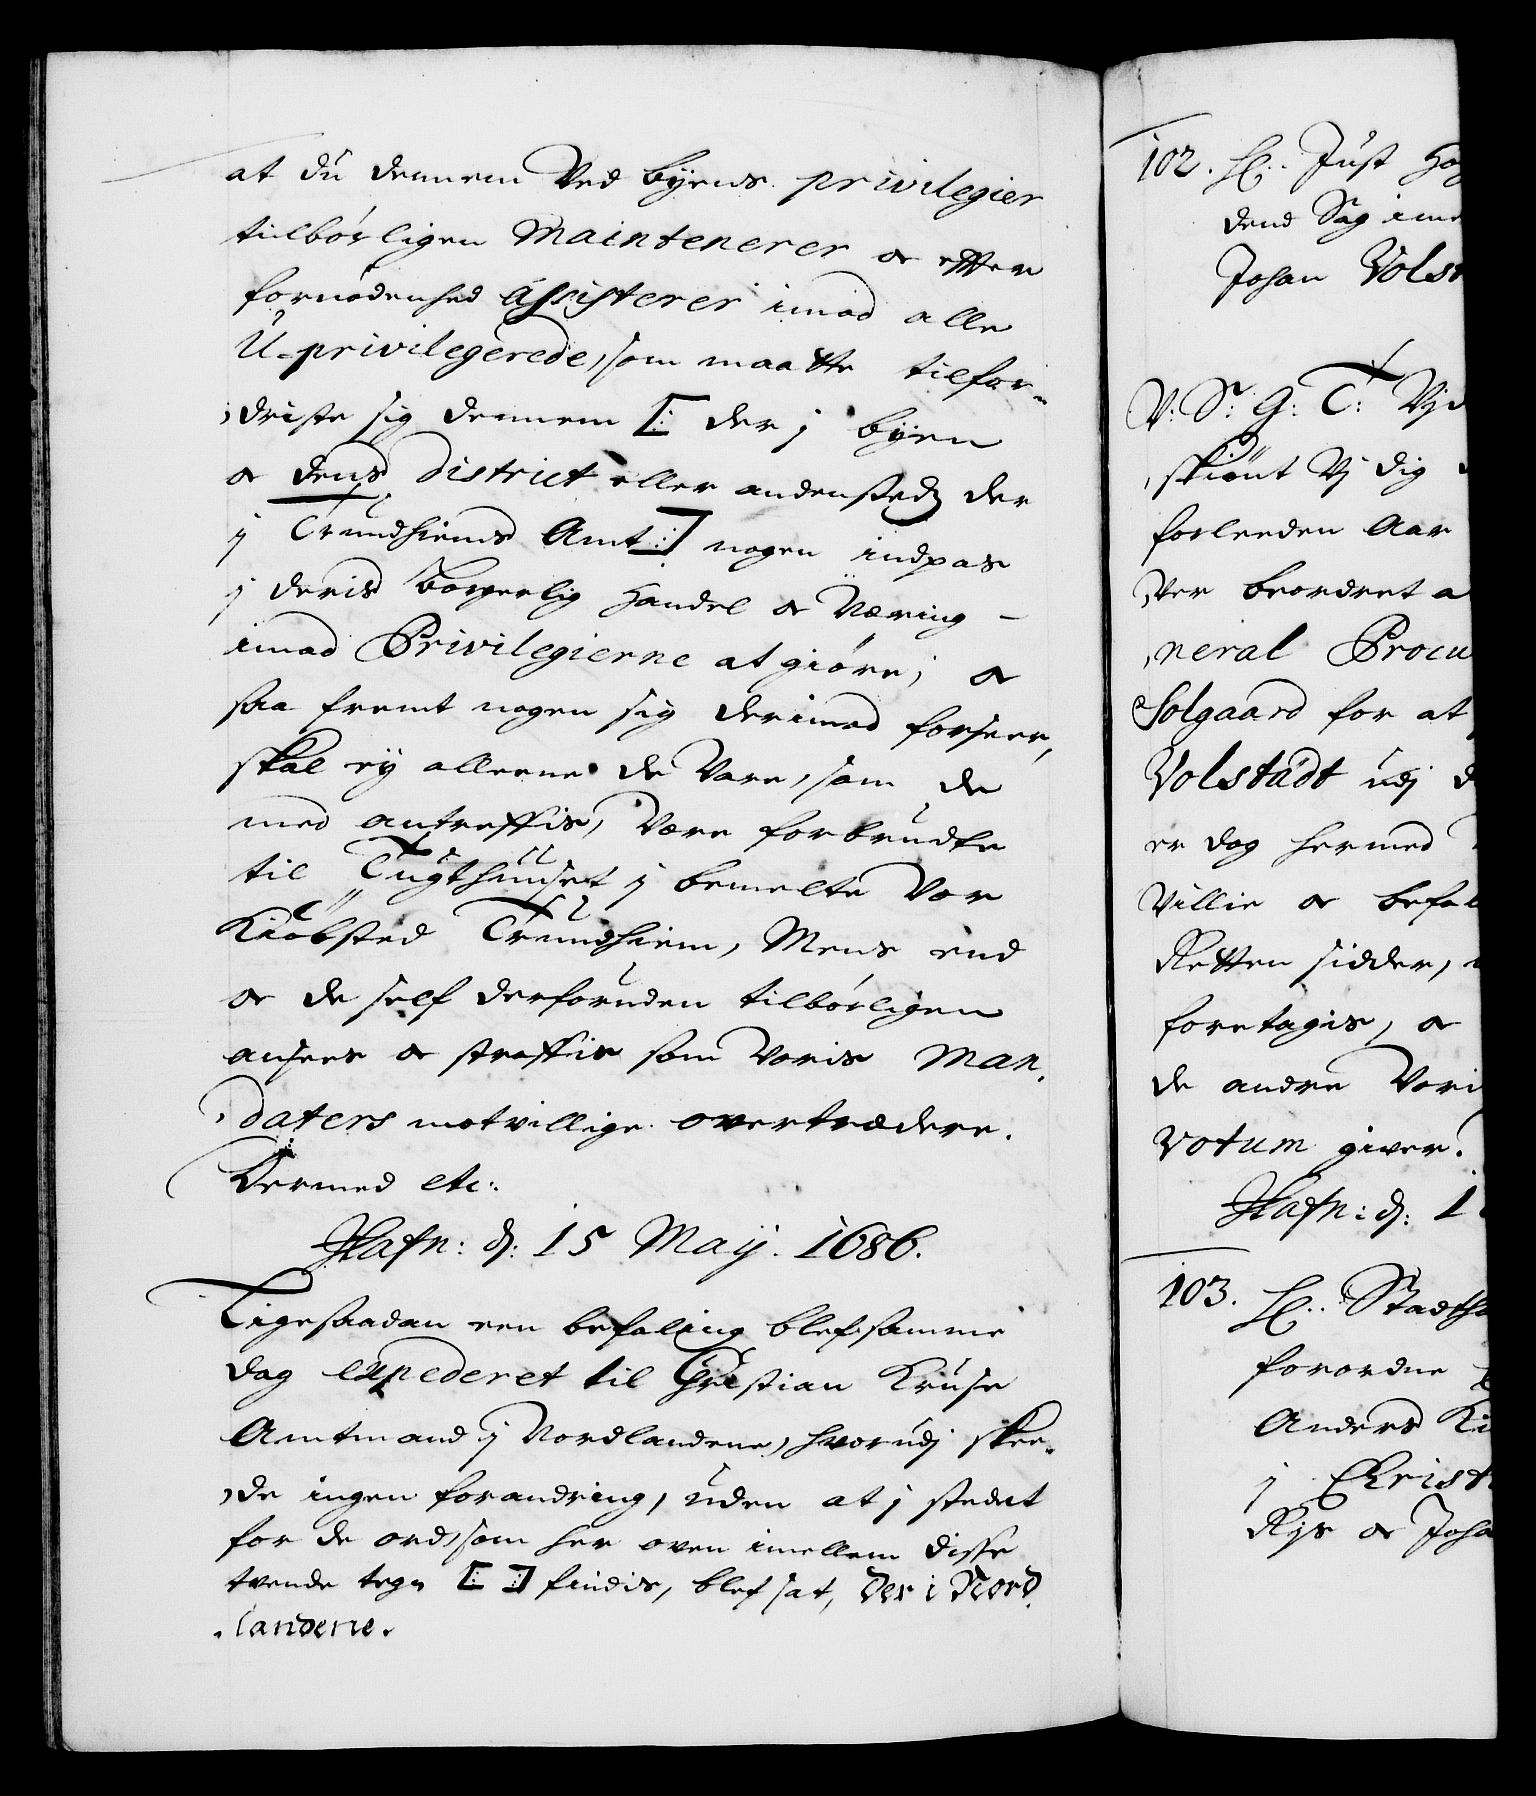 at du dennem Ved byens privilegier
tilbørligen Maintenerer oc effter
fornødenhed assisterer imod alle
U-privilegerede, som maatte tilfor-
driste sig dennem [: der j byen
oc dens district eller andenstedz der
j Trundhiems Amt :] nogen indpas
j deris borgerlig Handel oc Næring -
imod Privilegierne at giøre; oc
saa fremt nogen sig derimod forseer,
skal ej alleene de Vare, som de
med antreffis, Være forbrudte
til Tugthuuset j bemelte Vor
Kiøbsted Trundhiem, Mens end
oc de self derforuden tilbørligen
ansees oc straffis som Voris Man-
daters motvillige overtrædere.
Dermed etc:
Hafn: d: 15 Maij. 1686.
Ligesaadan een befaling blef samme
dag expederet til Christian Kruse
Amtmand j Nordlandene, hvorudj skee-
de ingen forandring, uden at j stedet
for de ord, som her oven imellem disse
tvende tegn [: :] findis, blef sat, der i Nord-
landene.
102. H: Just Hog
dend Sag ime
Johan Volst
V: S: G: T: Vjd
skiønt Vj dig
forleeden Aar
Ver beordret a
neral Procu
Solgaard for at
Volstadt udj d
er dog hermed
Villie oc befal
Retten sidder,
foretagis, oc
de andre Vori
votum giver.
Hafn: d: 1
103. H: Stadtho
forordne
Anders Ki
j Christ
Rys oc Joha